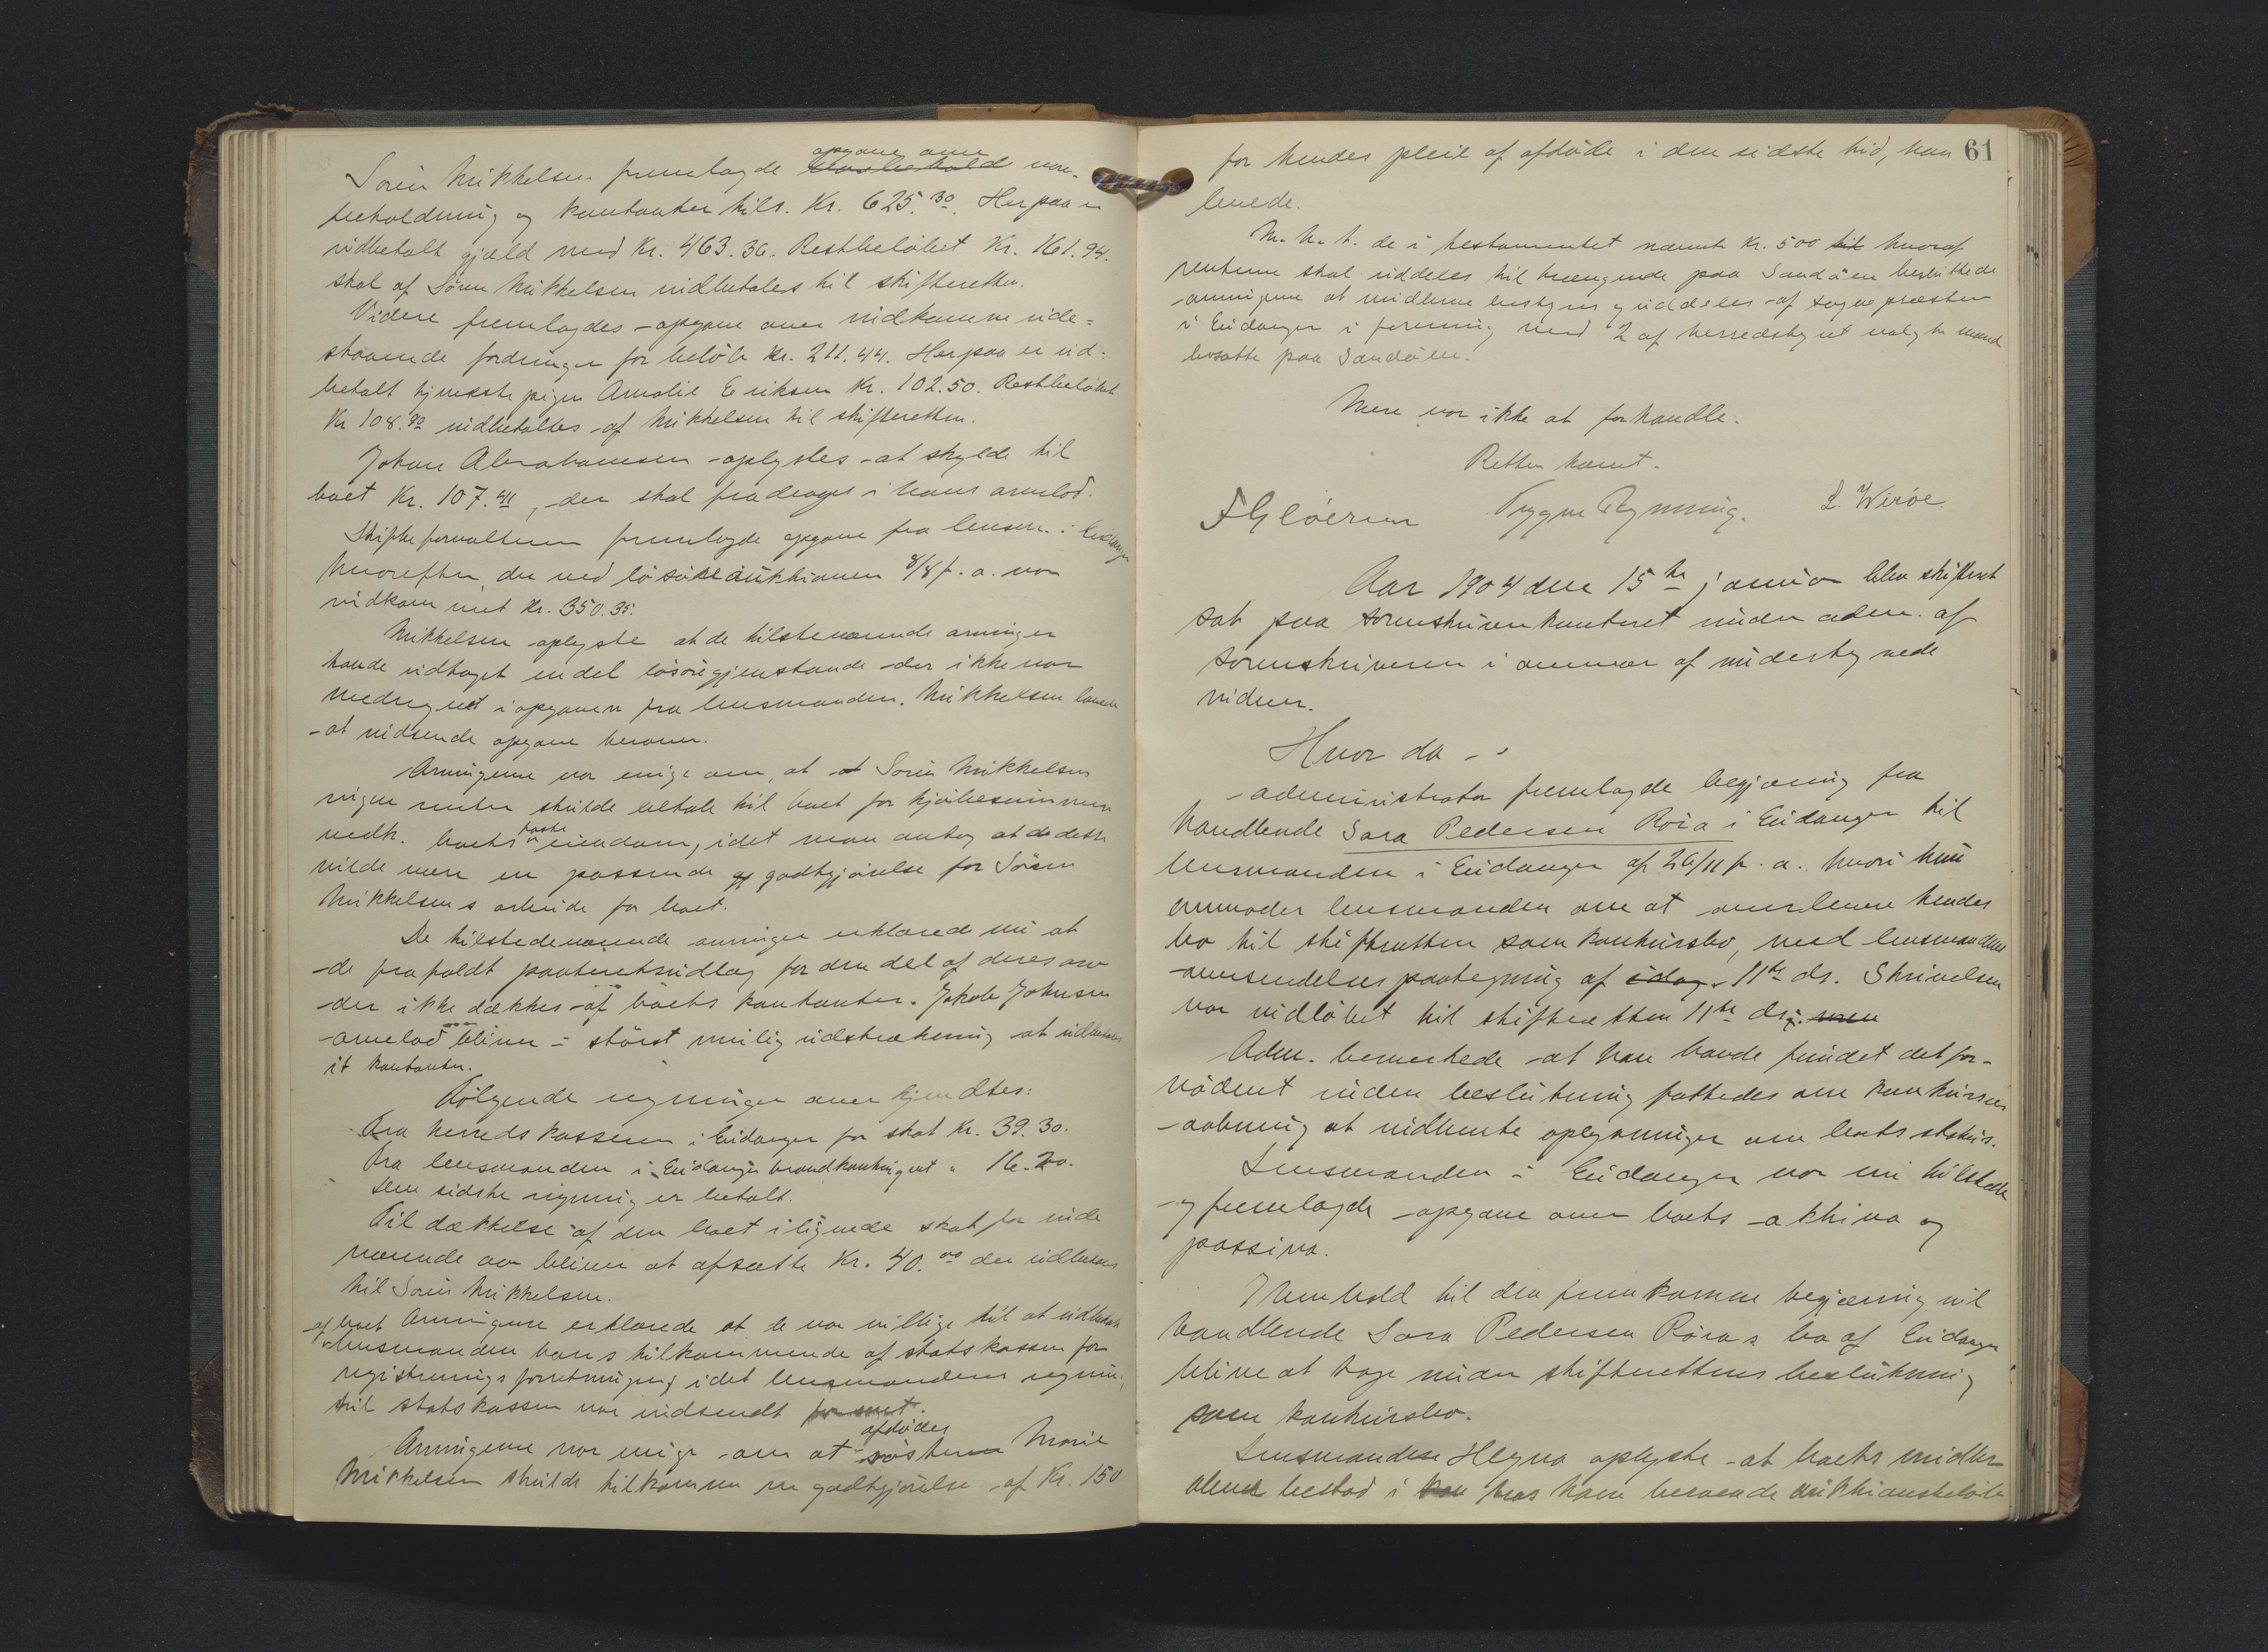 Sörin Mikkelsen fremlagde opgave over vare-
beholdning og kontanter tils. Kr. 625.30. Herpaa er
udbetalt gjæld med Kr. 463.36. Restbelöbet Kr. 161.94.
skal af Sören Mikkelsen indbetales til skifteretten.
Videre fremlagdes opgave over indkomne ude-
staaende fordringer for belöb Kr. 211.44. Herpaa er ud-
betalt tjenestepigen Amalie Eriksen Kr. 102.50. Restbelöbet
Kr 108.90 indbetaltes af Mikkelsen til skifteretten.
Johan Abrahamsen oplystes at skylde til
boet Kr. 107.41, der skal fradrages i hans arvelod.
Skifteforvalteren fremlagde opgave fra lensm. i Eidanger
hvorefter der ved lösöreauktionen 8/8 f. a. var
indkommet Kr. 350.35.
Mikkelsen oplyste at de tilstedeværende arvinger
havde udtaget en del lösöregjenstande der ikke var
medregnet i opgaven fra lensmanden. Mikkelsen lovede
at indsende opgave herover.
Arvingerne var enige om, at Sörin Mikkelsen
ingen renter skulde betale til boet for kjöbesummen
vedk. boets faste eiendom, idet man antog at dette
vilde være en passende godtgjörelse for Sören
Mikkelsens arbeide for boet.
De tilstedeværende arvinger erklærede nu at
de frafaldt panteretsudlæg for den del af deres arv
der ikke dækkes af boets kontanter. Jakob Johnsen
arvelod bliver i störst mulig udstrækning at udbetale
i kontanter.
Fölgende regninger anerkjendtes:
Fra herredskassereren i Eidanger for skat Kr. 39.30.
Fra lensmanden i Eidanger brandkontingent " 16.20.
Den sidste regning er betalt.
Til dækkelse af den boet ilignede skat for inde
værende aar bliver at afsætte Kr. 40.00 der udbetales
til Sörin Mikkelsen.
Arvingerne erklærede at de var villige til at udbetale
af boet lensmanden hans tilkommende af statskassen for
registreringsforretningen, idet lensmandens regning
til statskassen var indsendt for sent.
Arvingerne var enige om at afdödes söster Marie
Mikkelsen skulde tilkomme en godtgjörelse af Kr. 150
61
for hendes pleie af afdöde i den sidste tid, hun
levede.
M. h. t. de i testamentet nævnte Kr. 500 hvoraf
renterne skal uddeles til trængende paa Sandöen besluttede
arvingerne at midlerne bestyres og uddeles af sognepræsten
i Eidanger i forening med 2 af herredstyret valgte mænd
bosatte paa Sandöen.
Mere var ikke at forhandle.
Retten hævet.
F Glöersen Trygve Rynning. L. Wiröe.
Aar 1904 den 15de januar blev skifteret
sat paa sorenskriverkontoret under adm. af
sorenskriveren i overvær af undertegnede
vidner.
Hvor da -,
administrator fremlagde begjæring fra
handlende Sara Pedersen Röra i Eidanger til
lensmanden i Eidanger af 26/11 f. a. hvori hun
anmoder lensmanden om at overlevere hendes
bo til skifteretten som konkursbo, med lensmandens
oversendelsespaategning af idag. 11te ds. Skrivelsen
var indlöbet til skifteretten 11te ds.
Adm. bemerkede at han havde fundet det for-
nödent inden beslutning fattedes om konkursens
aabning at indhente oplysninger om boets status.
Lensmanden i Eidanger var nu tilstede
og fremlagde opgave over boets aktiva og
passiva.
I henhold til den fremkomne begjæring vil
handlende Sara Pedersen Röra's bo af Eidanger
blive at tage under skifterettens beslutning
som konkursbo.
Lensmanden Hegna oplyste at boets midler
alene bestod i hos ham beroende auktionsbelöb